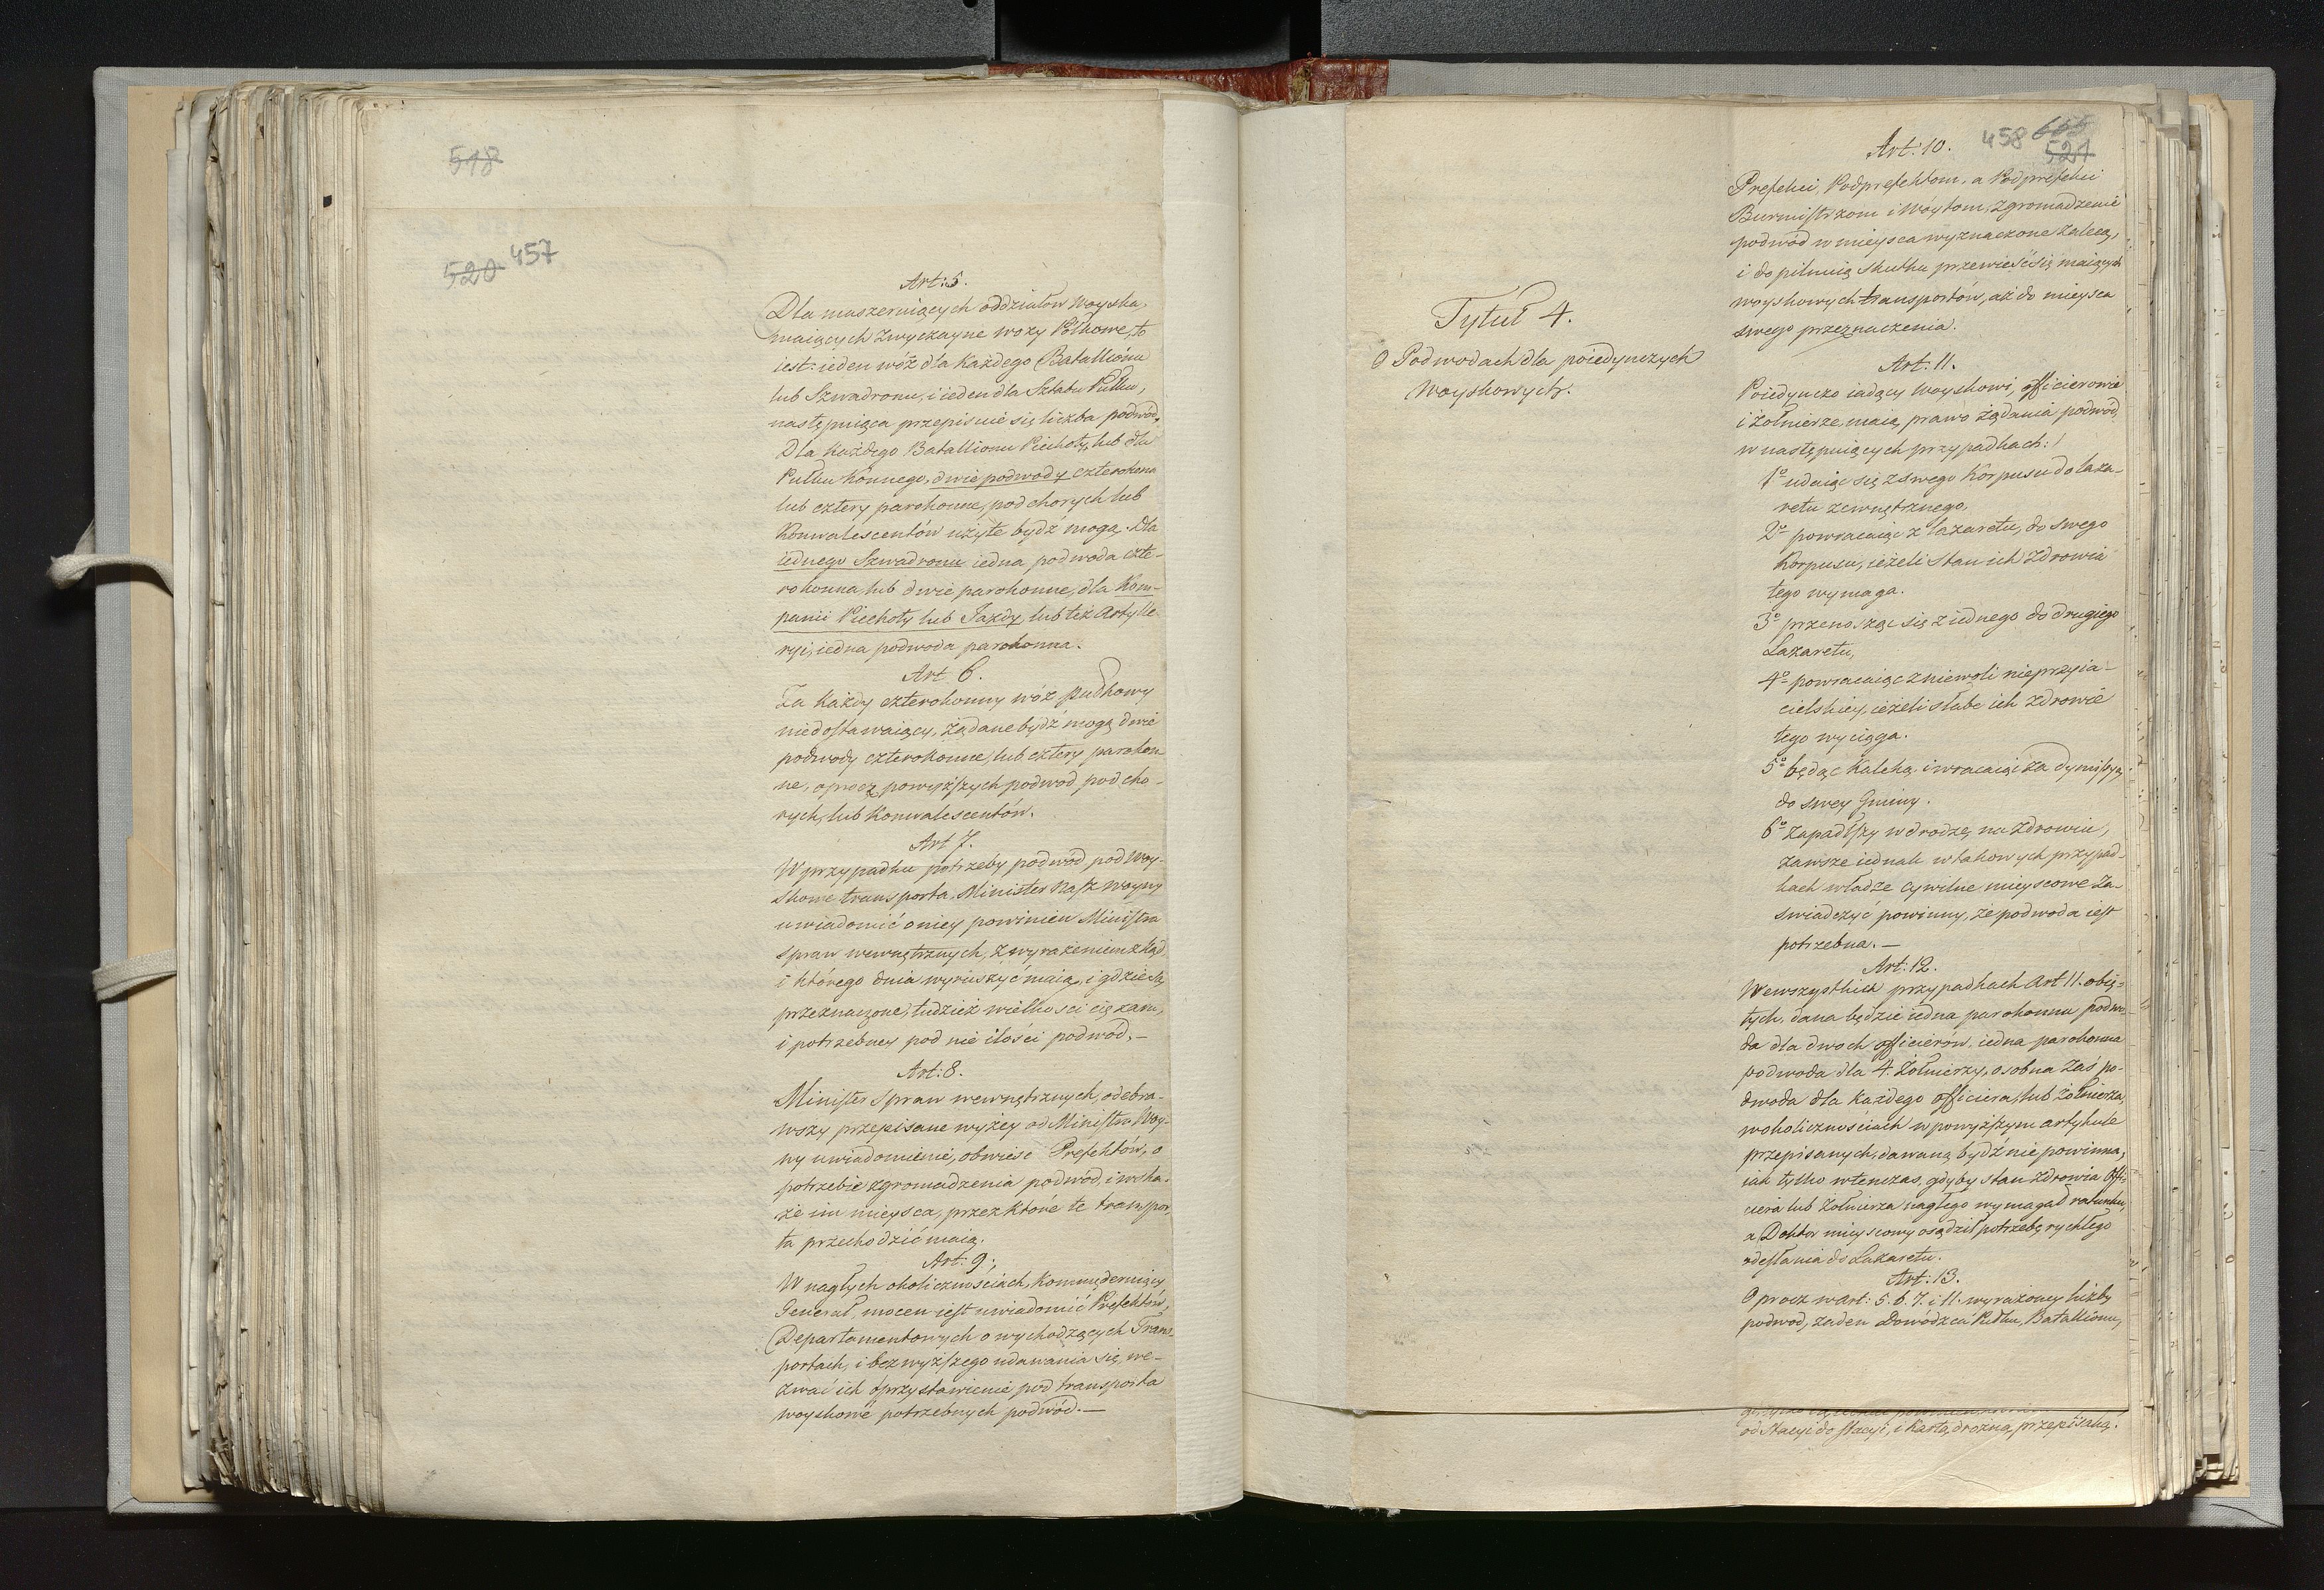 518
520 457
Art: 5.
Dla maszeruiących oddziałow Woyska,
maiących zwyczayne wozy Pólkowe, to
iest: ieden wóz dla każdego Batallionu
lub Szwadronu, i ieden dla Sztabu Pułku,
następuiąca przepisuie się liczba podwód,
Dla każdego Batallionu Piechoty, lub dla
Pułku Konnego, dwie podwody czterokonne
lub cztery parokonne, pod chorych lub
Konwalescentów użyte bydź mogą. Dla
iednego Szwadronu iedna podwoda czte-
rokonna, lub dwie parokonne, dla Kom-
panii Piechoty lub Jazdy, lub też Artylle
ryi, iedna podwoda parokonna.
Art. 6.
Za każdy czterokonny wóz pułkowy
niedostawaiący, żądane bydź mogą dwie
podwody czterokonne, lub cztery parokon
ne, oprocz powyższych podwod pod cho-
rych, lub Konwalescentów.
Art 7.
W przypadku potrzeby podwód pod Woy-
skowe transporta, Minister Nasz Woyny
uwiadomić oniey powinien Ministra
spraw wewnętrznych, z wyrażeniem zkąd
i którego dnia wyruszyć maią, i gdzie są
przeznaczone, tudzież wielkości ciężaru,
i potrzebney pod nie ilości podwod. —
Art: 8.
Minister Spraw wewnętrznych, odebra-
wszy przepisane wyżey od Ministra Woy-
ny uwiadomienie, obwieści Prefektów, o
potrzebie zgromadzenia podwód, i wska-
że im mieysca, przez które te transpor-
ta przechodzić maią.
Art: 9;
W nagłych okolicznościach, Kommęderuiący
Generał, mocen iest uwiadomić Prefektów,
Departamentowych o wychodzących Trans-
portach, i bez wyższego udawania się, we-
zwać ich o przystawienie pod transporta
woyskowe potrzebnych podwód. —
458 655
521
Art: 10.
Prefekci, Podprefektom, a Podprefekci
Burmistrzom i Wóytom, zgromadzenie
podwód w mieysca wyznaczone zalecą,
i dopilnuią skutku przewieść się maiących
woyskowych transportów, aż do mieysca
swego przeznaczenia.
Tytuł 4.
O Podwodach dla poiedynczych
Woyskowych.
Art: 11.
Poiedynczo iadący Woyskowi, officierowie
i żołnierze, maią prawo żądania podwód,
w następuiących przypadkach:
1o udaiąc się z swego Korpusu do laza-
retu zewnętrznego,
2o powracaiąc z lazaretu, do swego
Korpusu, ieżeli stan ich zdrowia
tego wymaga.
3o przenosząc się z iednego do drugiego
Lazaretu,
4o powracaiąc z niewoli nieprzyia-
cielskiey, ieżeli słabe ich zdrowie
tego wyciąga.
5o będąc kaleką, i wracaiąc za dymissyą
do swey Gminy.
6o zapadłszy w drodze na zdrowiu,
zawsze iednak w takowych przypad-
kach władze cywilne mieyscowe za-
swiadczyć powinny, że podwoda iest
potrzebna. —
Art: 12.
We wszystkich przypadkach Art 11. obię-
tych, dana będzie iedna parokonna podwo-
da dla dwoch officierow, iedna parokonna
podwoda dla 4. Żołnierzy, osobna zaś po-
dwoda dla każdego officiera, lub żołnierza,
w okolicznościach w powyższym artykule
przepisanych, dawaną bydź nie powinna,
iak tylko wtenczas, gdyby stan zdrowia Offi-
ciera lub Żołnierza nagłego wymagał ratunku,
a Doktor mieyscowy osądził potrzebę rychłego
odesłania do Lazaretu.
Art: 13.
Oprocz w Art: 5. 6. 7. i 11. wyrażoney liczby
podwod, żaden Dowódzca Pułku, Batallionu,
od Stacyi do Stacyi, i Kartą drożną przepisaną.